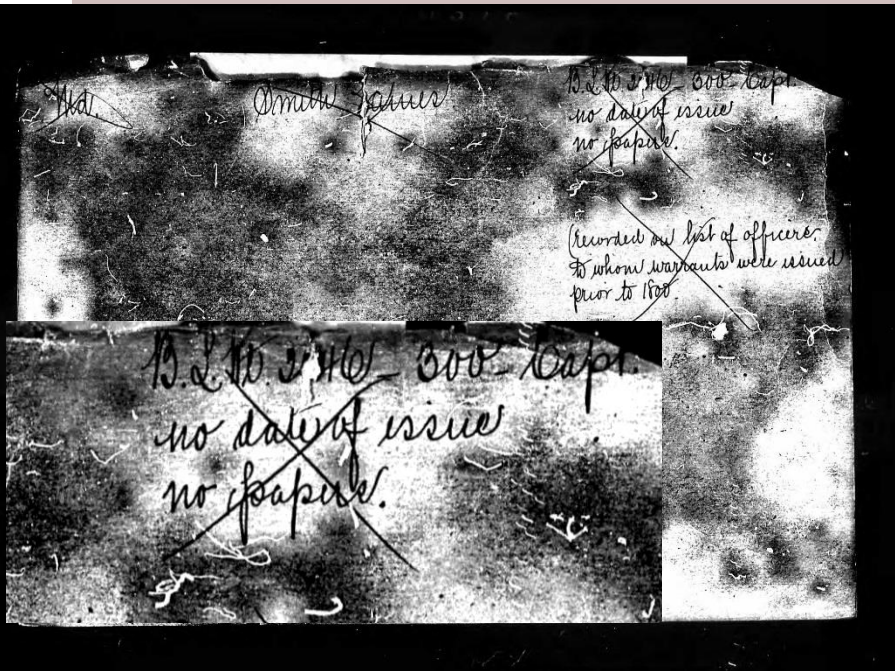 Md.
Smith James
B.L.Wt. 2346 - 300 - Capt.
no date of issue
no papers.
(recorded on list of officers,
to whom warrants were issued
prior to 1800.
B.L.Wt. 2346 - 300 - Capt.
no date of issue
no papers.